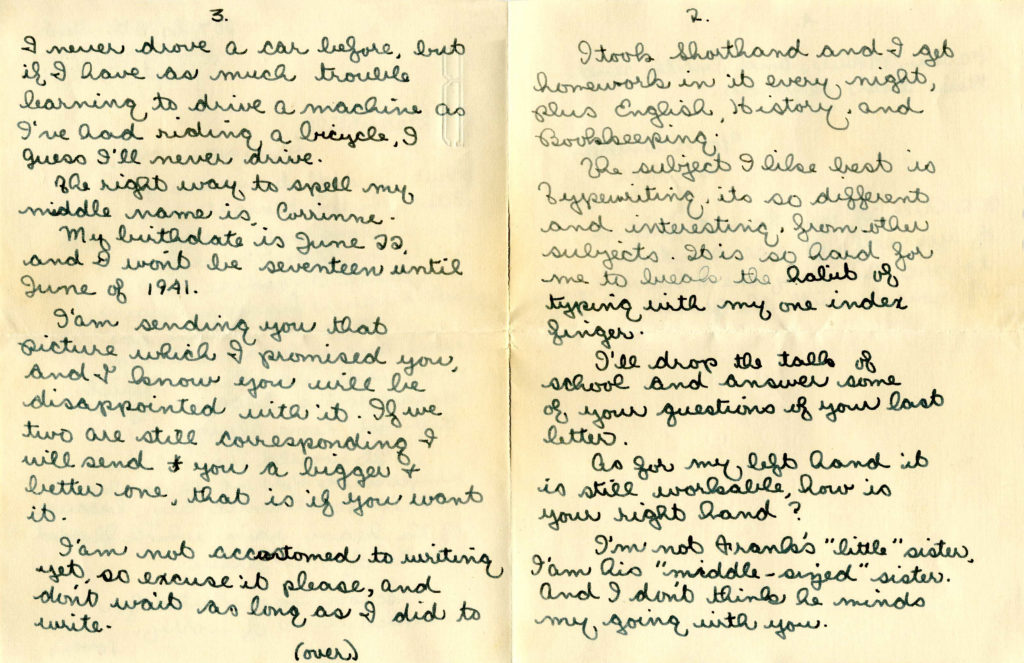 2.
I took Shorthand and I get
homework in it every night,
plus English, History, and
Bookkeeping.
The subject I like best is
Typewriting, its so different
and interesting, from other
subjects. It is so hard for
me to break the habit of
typing with my one index
finger.
I'll drop the talk of
school and answer some
of your questions of your last
letter.
As for my left hand it
is still workable, how is
your right hand?
I'm not Frank's "little" sister,
I'am his "middle-sized" sister.
And I don't think he minds
my going with you.
3.
I never drove a car before, but
if I have as much trouble
learning to drive a machine as
I've had riding a bicycle, I
guess I'll never drive.
The right way to spell my
middle name is, Corrinne.
My birthdate is June 22,
and I won't be seventeen until
June of 1941.
I'am sending you that
picture which I promised you,
and I know you will be
disappointed with it. If we
two are still corresponding I
will send you a bigger &
better one, that is if you want
it.
I'am not accustomed to writing
yet, so excuse it please, and
don't wait as long as I did to
write.
(over)